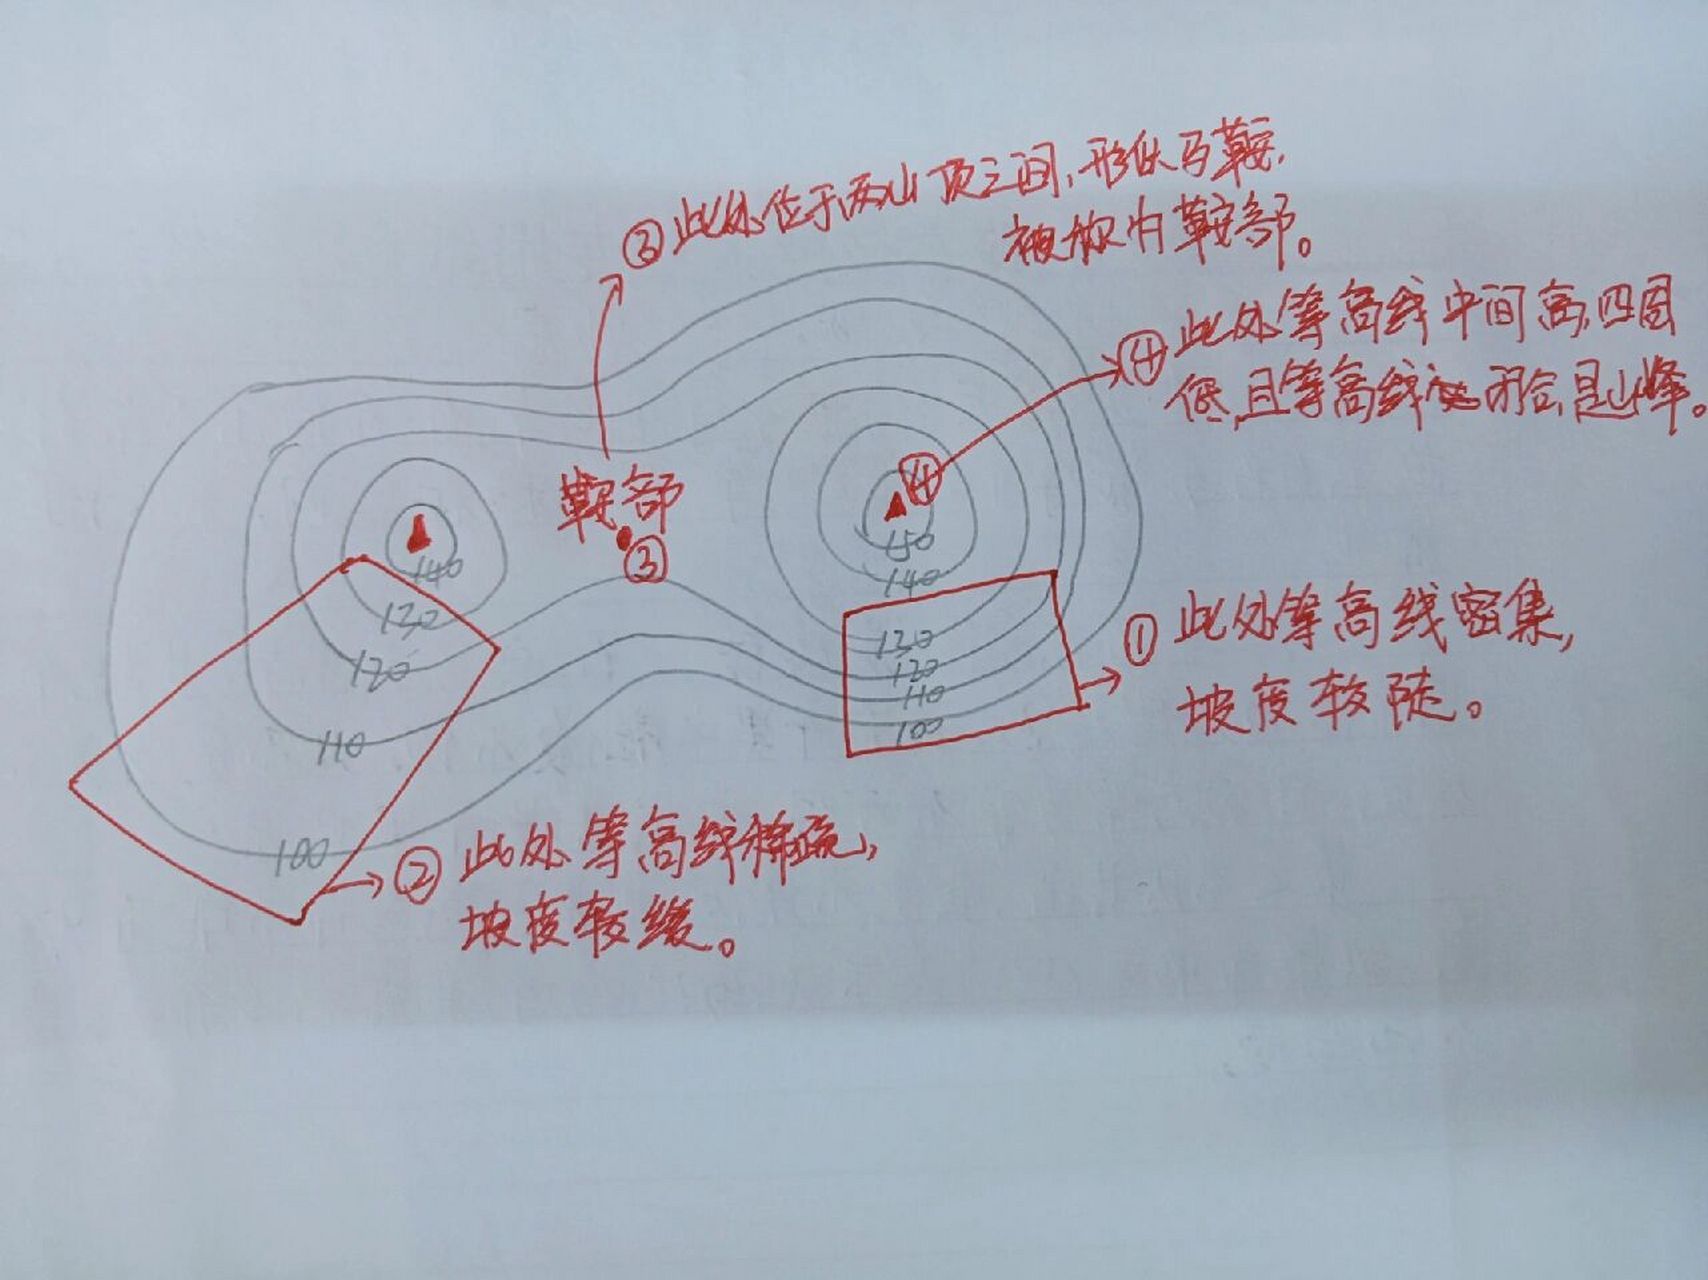 ③此处位于两山顶之间,形似马鞍,
被称为鞍部。
④此处等高线中间高,四周
低,且等高线闭合,是山峰。
④
鞍部
③
150
140
140
130
120
110
100
130
120
110
100
①此处等高线密集,
坡度较陡。
②此处等高线稀疏,
坡度较缓。